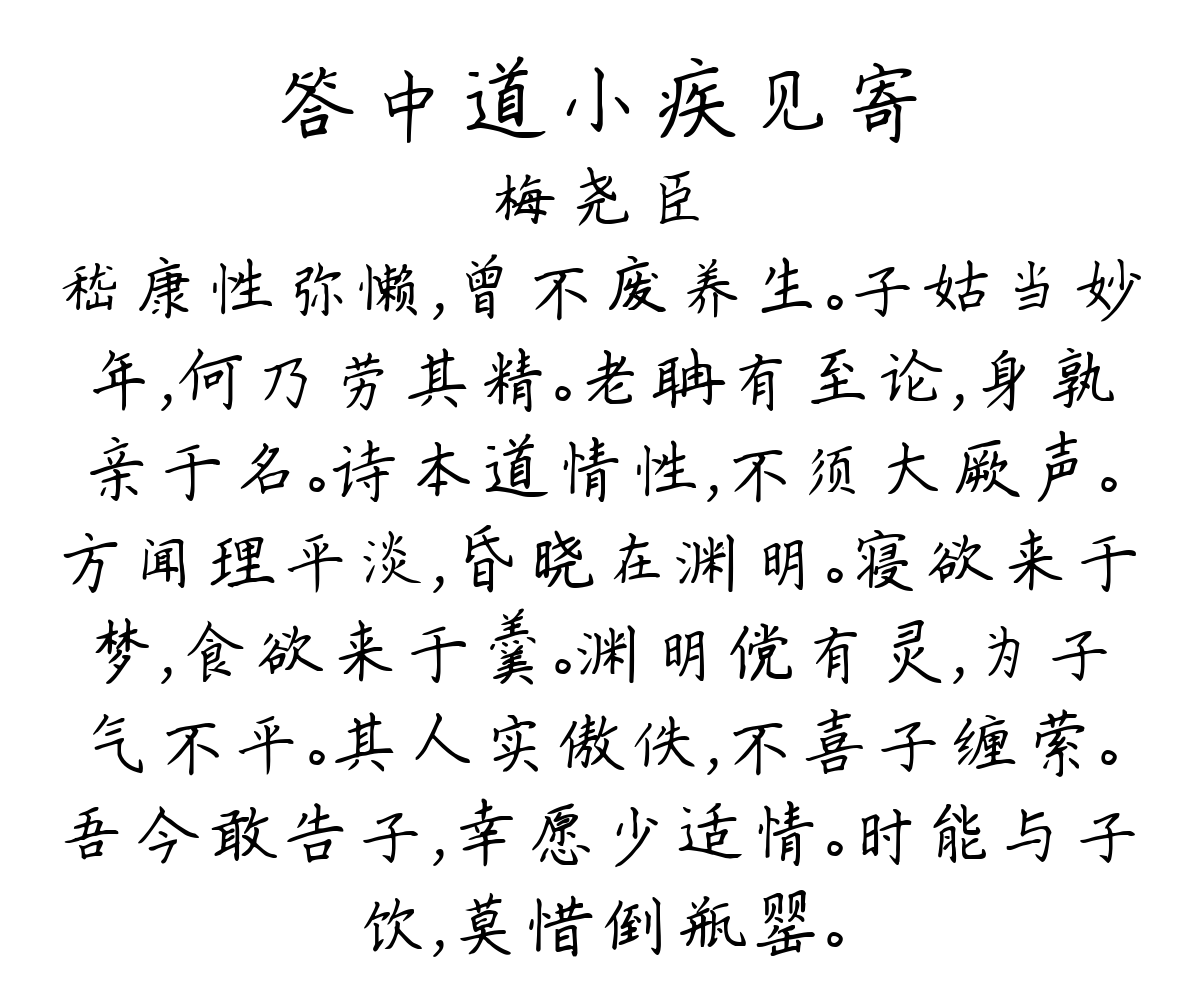 答中道小疾见寄
梅尧臣
嵇康性弥懒,曾不废养生。子姑当妙
年,何乃劳其精。老聃有至论,身孰
亲于名。诗本道情性,不须大厥声。
方闻理平淡,昏晓在渊明。寝欲来于
梦,食欲来于羹。渊明傥有灵,为子
气不平。其人实傲佚,不喜子缠萦。
吾今敢告子,幸愿少适情。时能与子
饮,莫惜倒瓶罂。